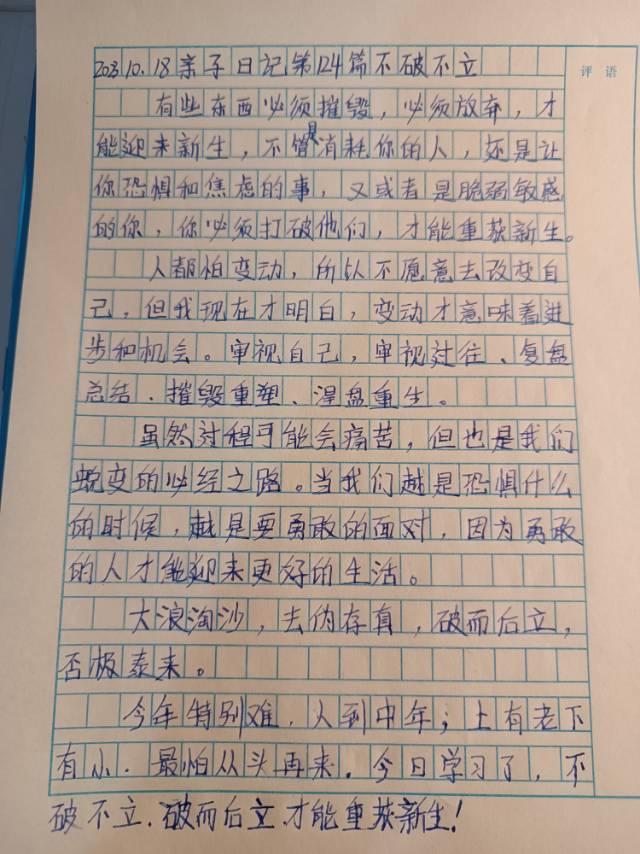 2023.10.18亲子日记第124篇不破不立
评语
有些东西必须摧毁，必须放弃，才
能迎来新生，不管是消耗你的人，还是让
你恐惧和焦虑的事，又或者是脆弱敏感
的你，你必须打破他们，才能重获新生。
人都怕变动，所以不愿意去改变自
己，但我现在才明白，变动才意味着进
步和机会。审视自己，审视过往、复盘
总结、摧毁重塑、涅盘重生。
虽然过程可能会痛苦，但也是我们
蜕变的必经之路。当我们越是恐惧什么
的时候，越是要勇敢的面对，因为勇敢
的人才能迎来更好的生活。
大浪淘沙，去伪存真，破而后立，
否极泰来。
今年特别难，人到中年；上有老下
有小．最怕从头再来．今日学习了，不
破不立．破而后立才能重获新生！